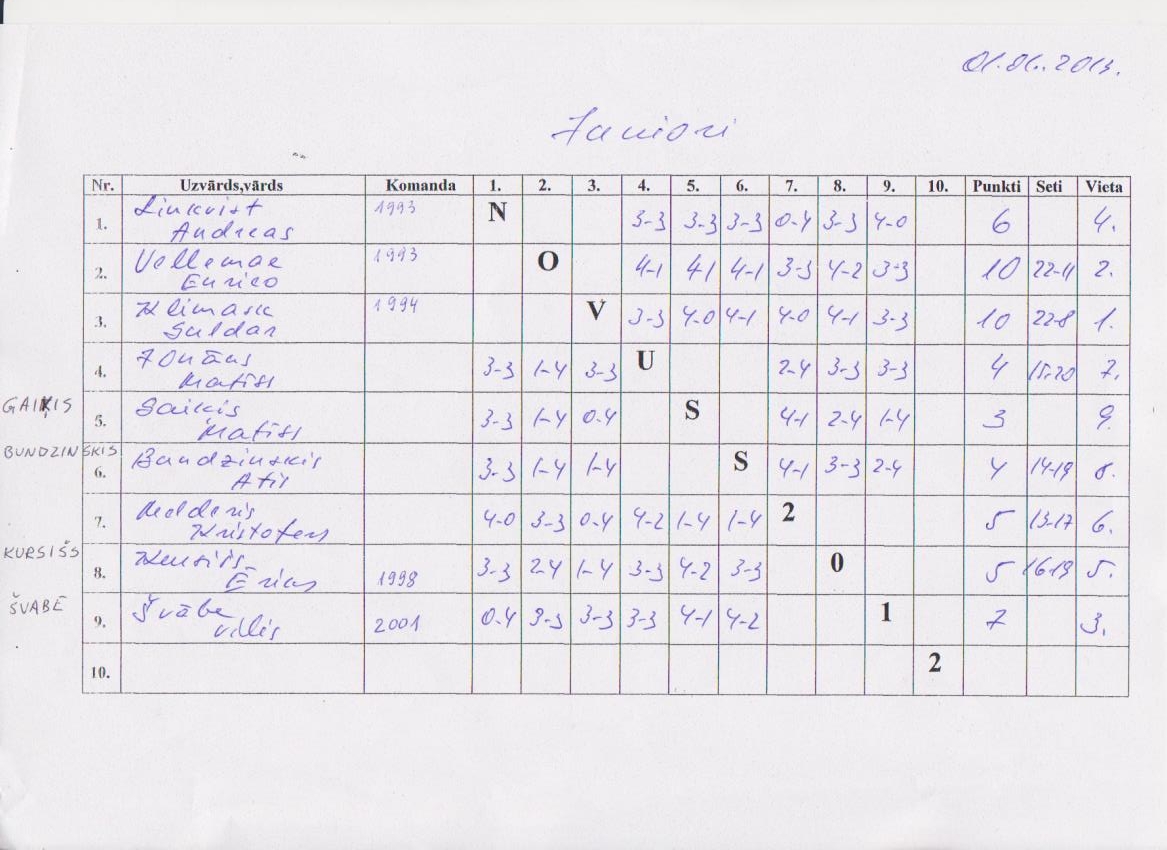 01.06.2013.
Juniori
Nr. Uzvārds,vārds Komanda 1. 2. 3. 4. 5. 6. 7. 8. 9. 10. Punkti Seti Vieta
1. Linkvist Andreas 1993 N 3-3 3-3 3-3 0-4 3-3 4-0 6 4.
2. Vellemae Enrico 1993 O 4-1 4-1 4-1 3-3 4-2 3-3 10 22-11 2.
3. Klimask Suldar 1994 V 3-3 4-0 4-1 4-0 4-1 3-3 10 22-8 1.
4. Zonāns Matīss 3-3 1-4 3-3 U 2-4 3-3 3-3 4 15-20 7.
GAIĶIS
5. Gaiķis Matīss 3-3 1-4 0-4 S 4-1 2-4 1-4 3 9.
BUNDZINSKIS
6. Bundzinskis Atis 3-3 1-4 1-4 S 4-1 3-3 2-4 4 14-19 8.
7. Melderis Kristofers 4-0 3-3 0-4 4-2 1-4 1-4 2 5 13-17 6.
KURSIŠS
8. Kursišs Ēriks 1998 3-3 2-4 1-4 3-3 4-2 3-3 0 5 16-19 5.
ŠVABE
9. Švābe Vilis 2001 0-4 3-3 3-3 3-3 4-1 4-2 1 7 3.
10. 2